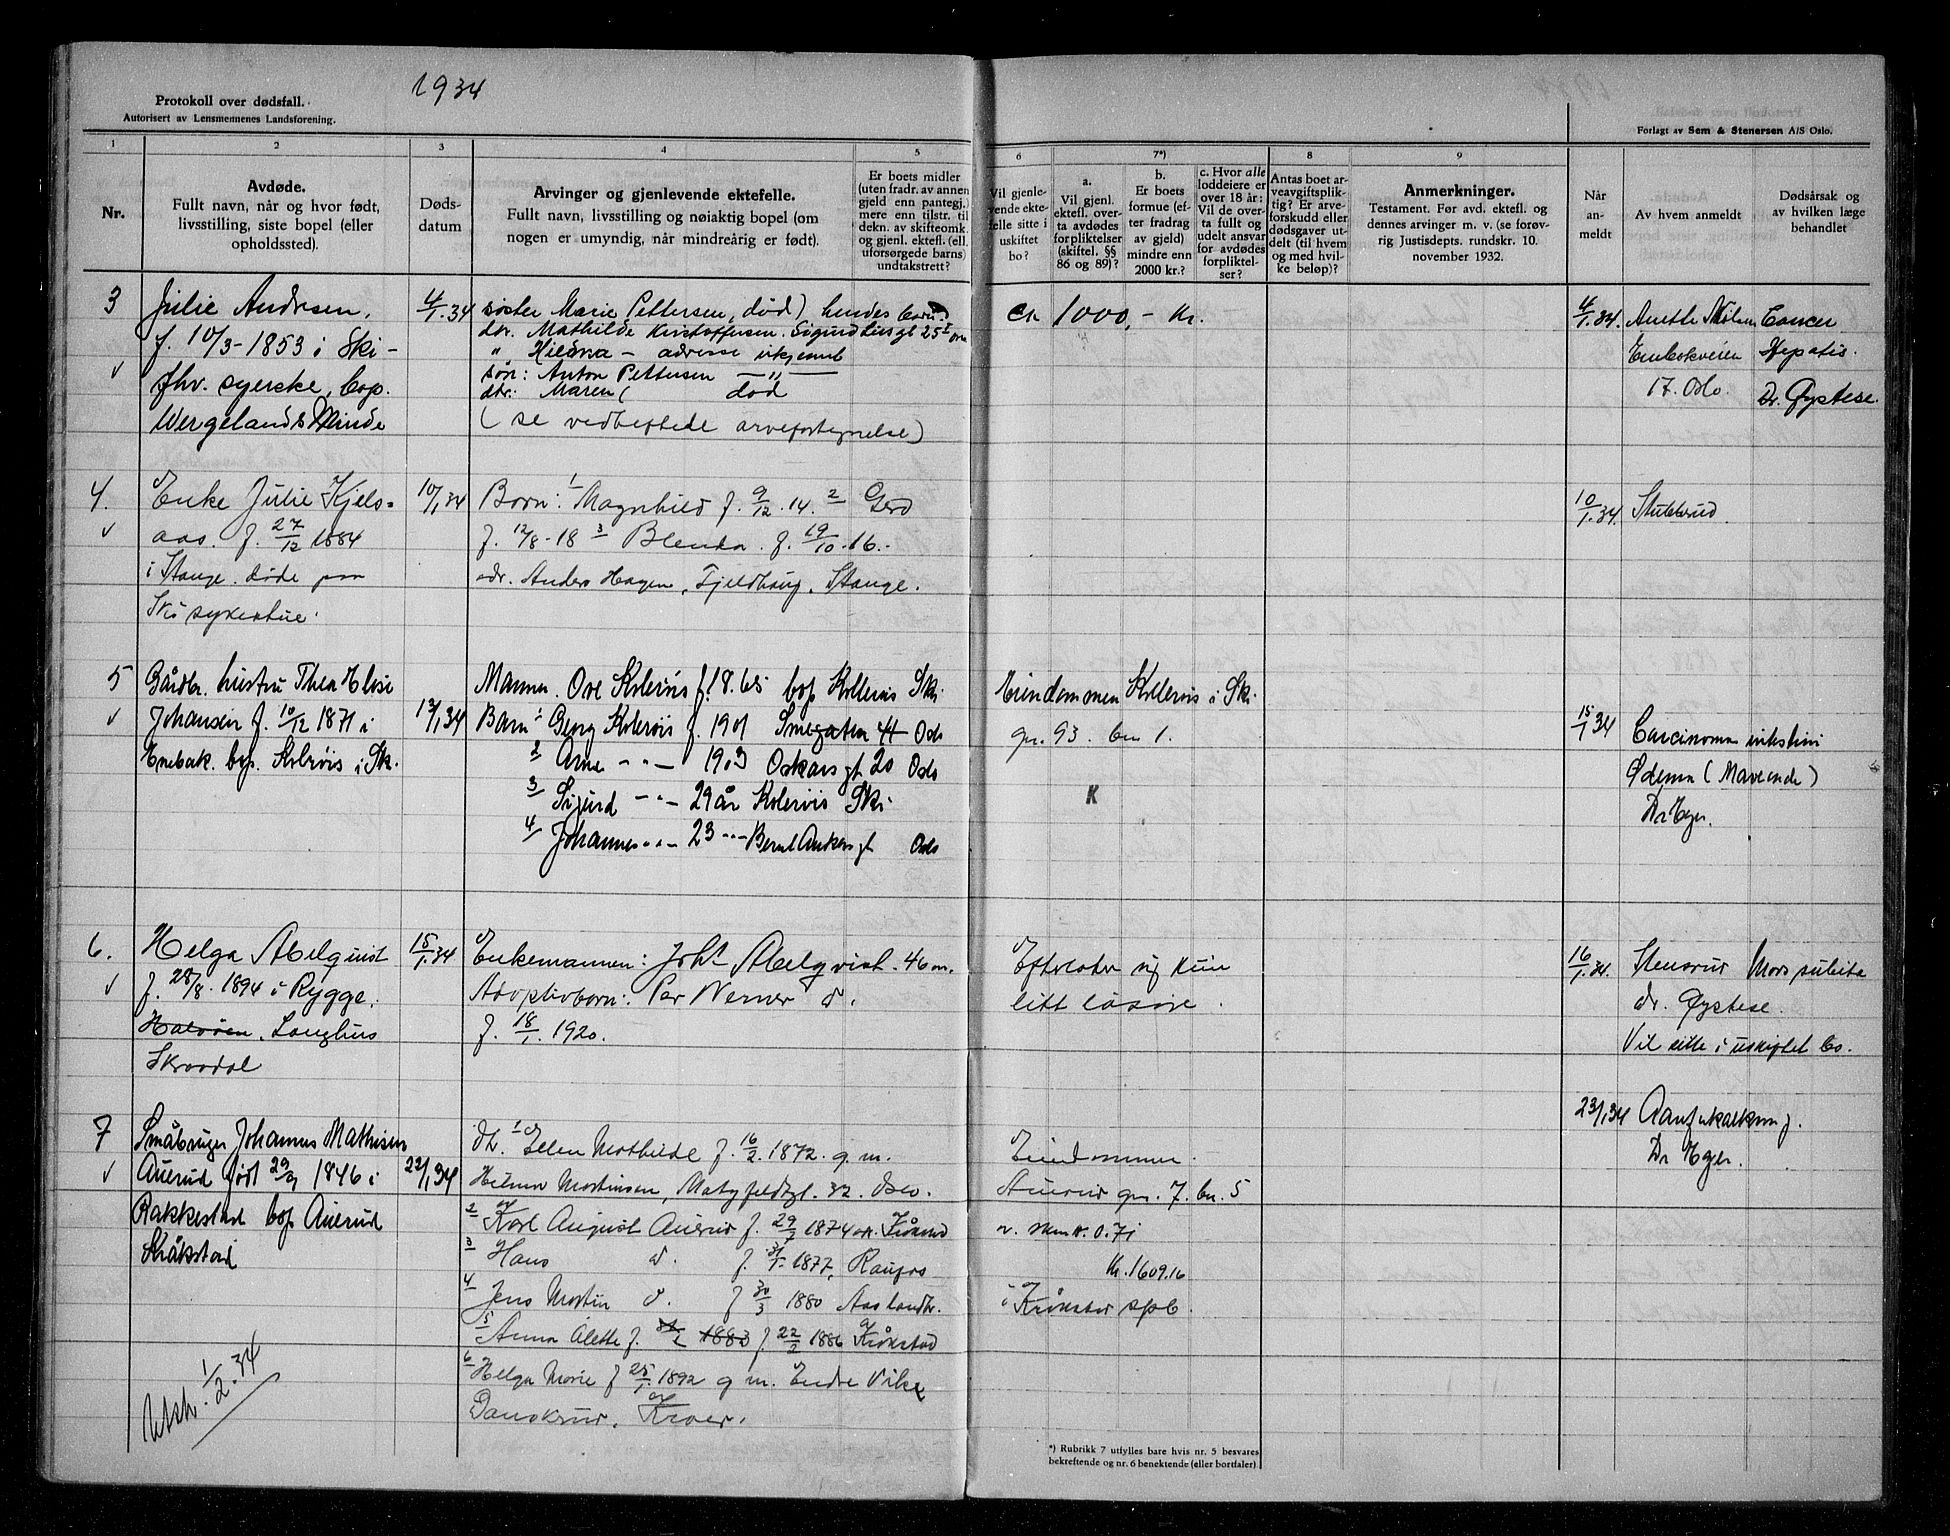 1934
Protokoll over dødsfall.
Autorisert av Lensmennenes Landsforening.
Forlagt av Sem & Stenersen A/S Oslo.
1 2 3 4 5 6 7*) 8 9
Nr.
Avdøde.
Fullt navn, når og hvor født,
livsstilling, siste bopel (eller
opholdssted).
Døds-
datum
Arvinger og gjenlevende ektefelle.
Fullt navn, livsstilling og nøiaktig bopel (om
nogen er umyndig, når mindreårig er født).
Er boets midler
(uten fradr. av annen
gjeld enn pantegj.)
mere enn tilstr. til
dekn. av skifteomk.
og gjenl. ektef. (ell.
uforsørgede barns)
undtakstrett?
Vil gjenle-
vende ekte-
felle sitte i
uskiftet
bo?
a.
Vil gjenl.
ektefl. over-
ta avdødes
forpliktelser
(skiftel. §§
86 og 89)?
b.
Er boets
formue (ef-
ter fradrag
av gjeld)
mindre enn
2000 kr.?
c. Hvor alle
loddeiere er
over 18 år:
Vil de over-
ta fullt og
udelt ansvar
for avdødes
forpliktel-
ser?
Antas boet ar-
veavgiftsplik-
tig? Er arve-
forskudd eller
dødsgaver ut-
delt (til hvem
og med hvil-
ke beløp)?
Anmerkninger.
Testament. Før avd. ektefl. og
dennes arvinger m. v. (se forøv-
rig Justisdepts. rundskr. 10.
november 1932.
Når
an-
meldt
Av hvem anmeldt
Dødsårsak og
av hvilken læge
behandlet
3
Julie Andresen.
f. 10/3-1853 i Ski -
fhv. syerske, bop.
Wergelands Minde
4/1.34
søster Marie Pettersen, død) hendes barn:
dtr. Mathilde Kristoffersen. Sigurd
" Hilda - adresse ukjent
søn: Anton Pettersen — " —
dtr: Maren ( død
( se vedheftede arvefortegnelse)
ca 1000,- Kr.
4/1.34.
17. Oslo.
Cancer
Hepatis.
Dr. Øystese.
4.
Enke Julie Kjels-
aas. f. 27/12 1884
i Stange. døde paa
Ski sykestue.
10/1 34
Barn: 1 Magnhild f. 9/12.14. 2 Gerd
f. 12/8-18 3 Blenda. f. 19/10.16.
adr. Anders Hagen, Fjeldhaug, Stange.
10/1.34.
Stubberud.
5
Gårdbr. hustru Thea Elise
Johansen f. 10/12 1871 i
Enebak. bop. i Ski.
13/1 34
Mannen. Ove f. 18.65 bop Ski
Barn 1 Georg f. 1901 Oslo
2 Arne - " - 1903 Oskars gt 20 Oslo
3 Sigurd - " - 29 år Ski
4 Johannes - " - 23 - " - Bernt Ankers gt Oslo
Eiendommen i Ski
gn. 93. bn 1.
K
15/1 34
Carcinoma
Ødema
Dr Eger.
6.
Helga Abelquist
f. 28/8. 1894 i Rygge,
Halvøen. Langhus
Skroodal
15/1.34
Enkemannen: Joh. Abelqvist. 46 år.
Adoptivbarn: Per Werner d.
f. 18/1. 1920.
Efterlater sig kun
litt løsøre.
16/1.34.
Stenerud
Mors subita
dr. Øystese.
Vil sitte i uskiftet bo.
7
Småbruger Johannes Mathisen
Auerud født 29/9 1846 i
Rakkestad bop Auerud
Kråkstad
22/1 34
Dt. 1 Ellen Mathilde f. 16/2. 1872. g. m.
Hilmar Martinsen, 32. Oslo.
2 Karl August Auerud f. 29/2 1874 Kråkstad
3 Hans d. f. 31/1 1877, Raufoss
4 Jens Martin d. f 30/3 1880 Aas landbr.
5 Anna Alette f. 1883 f. 22/2 1886 Kråkstad
6 Helga Marie f 25/1. 1892 g m. Endre Vike
Danskrud, Kroer.
Eiendommen
Auerud gn. 7. bn. 5
Kr. 1609.16
i Kråkstad spb.
23/1 34
Dr Eger.
Utskr. 1/2.34
*) Rubrikk 7 utfylles bare hvis nr. 5 besvares
bekreftende og nr. 6 benektende (eller bortfaler)